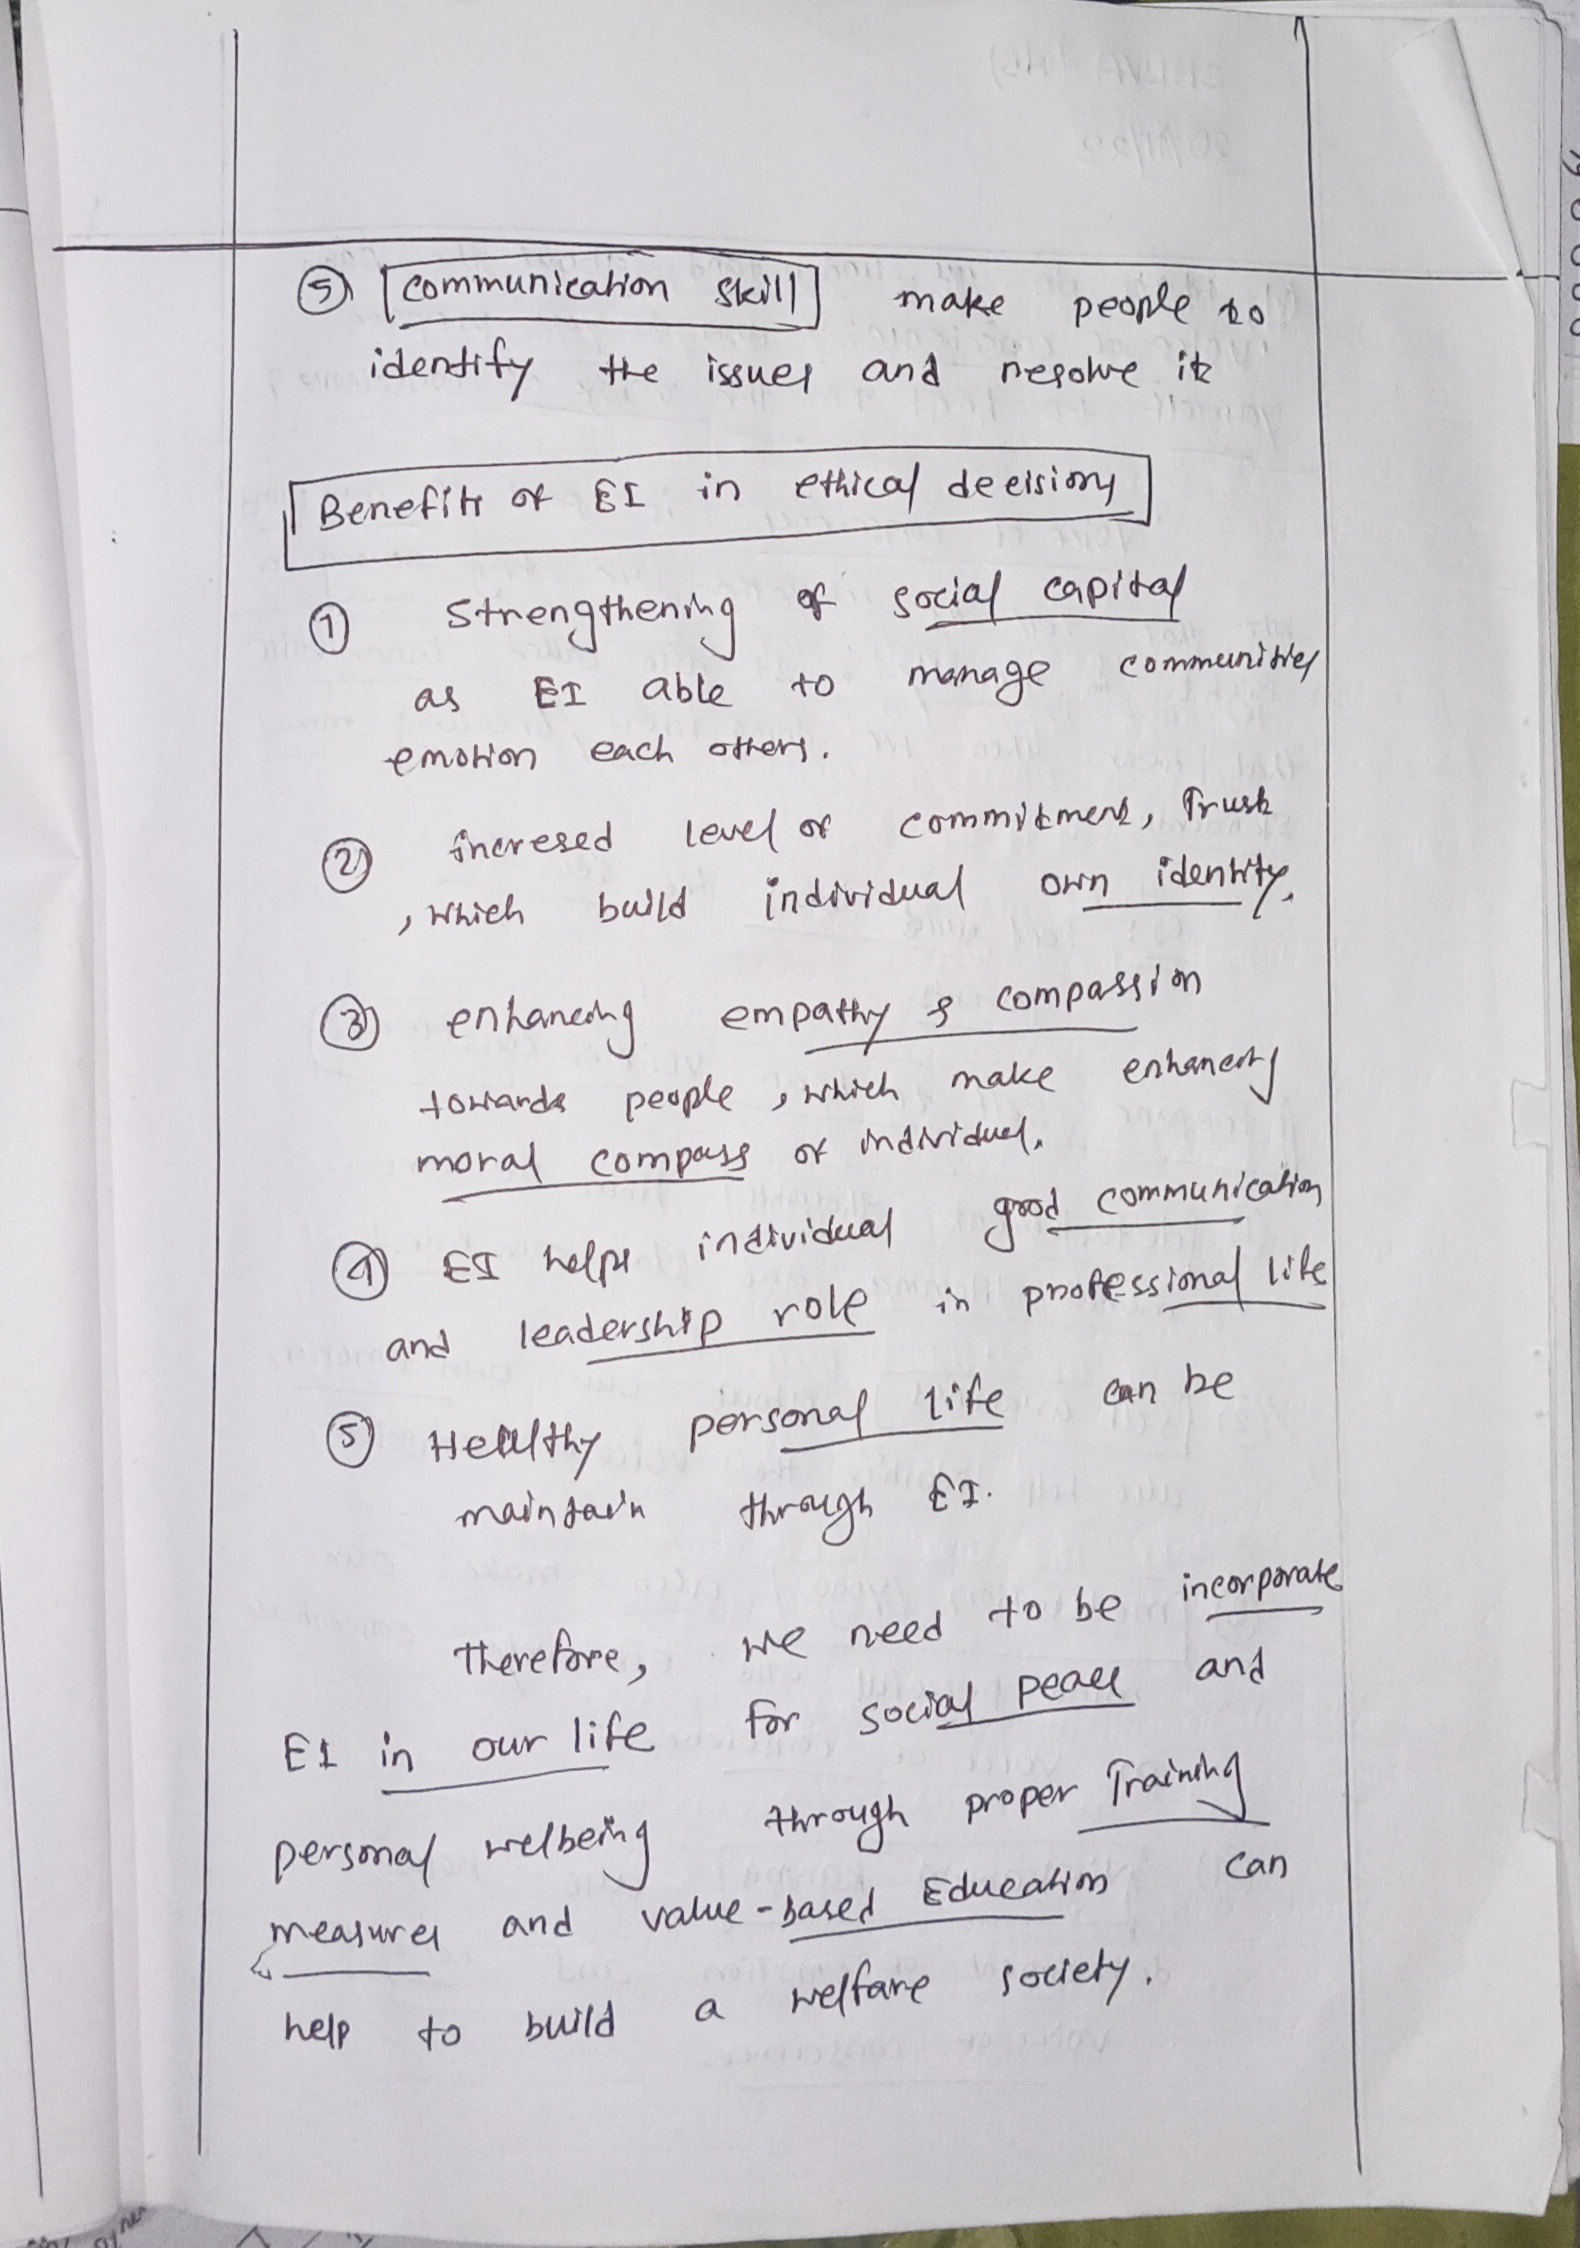 ⑤ Communication skill make people to
identify the issues and resolve it
Benefits of EI in ethical decisions
① Strengthening of social capital
as EI able to manage communities
emotion each others.
② incresed level of commitment, Trust
, which build individual own identity.
③ enhancing empathy & compassion
towards people, which make enhancing
moral compass of individual.
④ EI helps individual good communication
and leadership role in professional life
⑤ Healthy personal life can be
maintain through EI.
Therefore, we need to be incorporate
EI in our life for social peace and
personal welbeing through proper Training
measures and value-based Education can
help to build a welfare society.